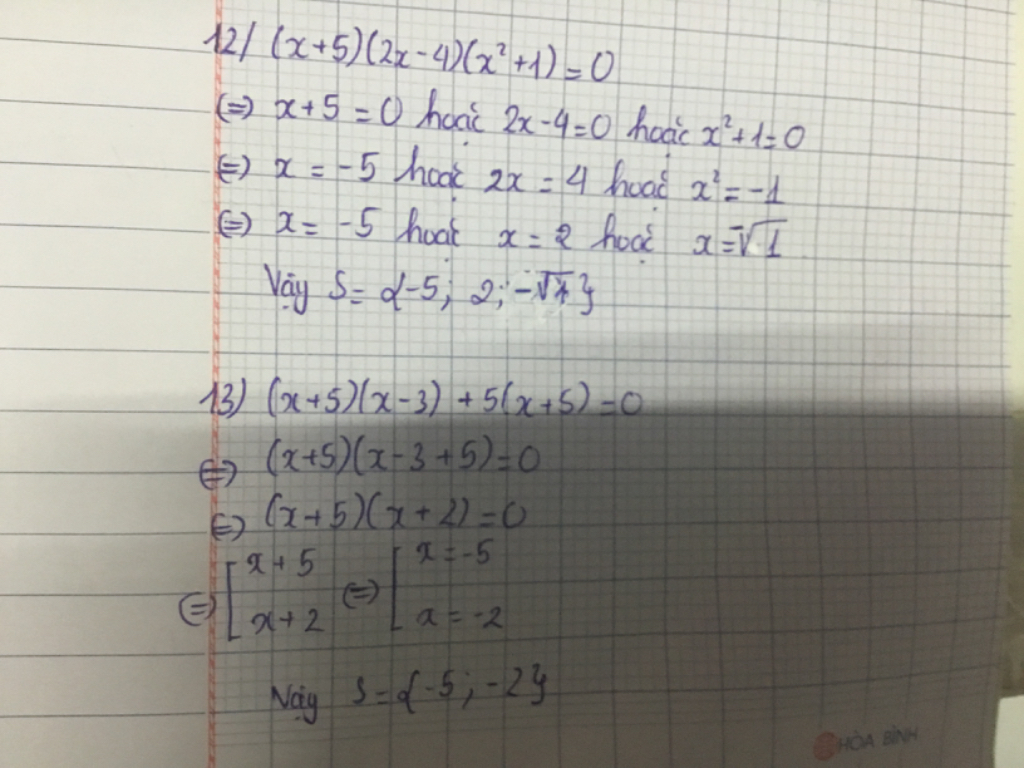 12/ (x+5)(2x-4)(x²+1)=0
(=) x+5=0 hoặc 2x-4=0 hoặc x²+1=0
(=) x = -5 hoặc 2x = 4 hoặc x² = -1
(=) x = -5 hoặc x = 2 hoặc x = -√1
Vậy S = {-5; 2; -√1}
13) (x+5)(x-3) + 5(x+5) = 0
(=) (x+5)(x-3+5)=0
(=) (x+5)(x+2)=0
(=) [ x+5 (=) [ x=-5
x+2 x = -2
Vậy S = {-5; -2}
HÒA BÌNH